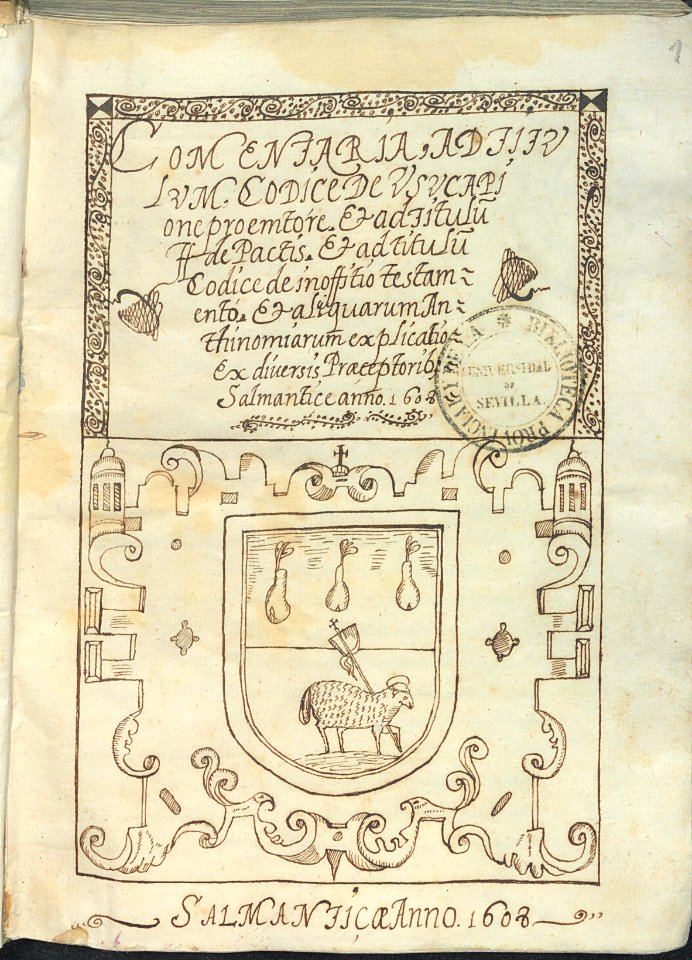 1
COMENTARIA, AD TITV
LVM. CODICE DE VSVCAPI
one pro emtore. Et ad Titulū
ff de Pactis. Et ad titulū
Codice de inoffitio testam~
ento. Et aliquarum An~
thinomiarum explicatio
Ex diversis Præceptorib
Salmantice anno. 1608
BIBLIOTECA PROVINCIAL Y DE LA
UNIVERSIDAD
DE
SEVILLA.
SALMANTICÆ Anno. 1608